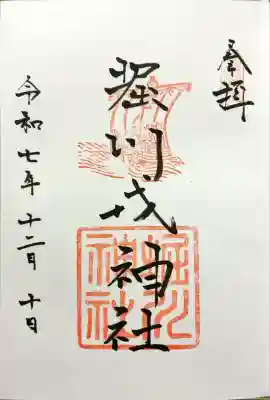 奉拝
堀川戎神社
令和七年十二月十日
堀川
神社